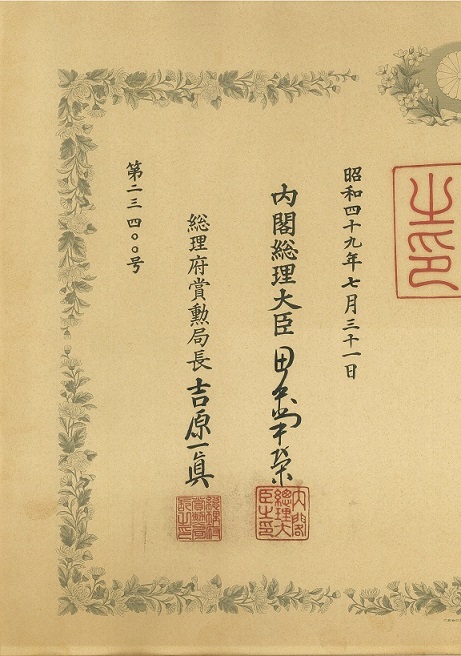 之印
昭和四十九年七月三十一日
内閣総理大臣 田中角榮
内閣總理大臣之印
総理府賞勲局長 吉原一眞
總理府賞勳局長之印
第二三四〇〇号